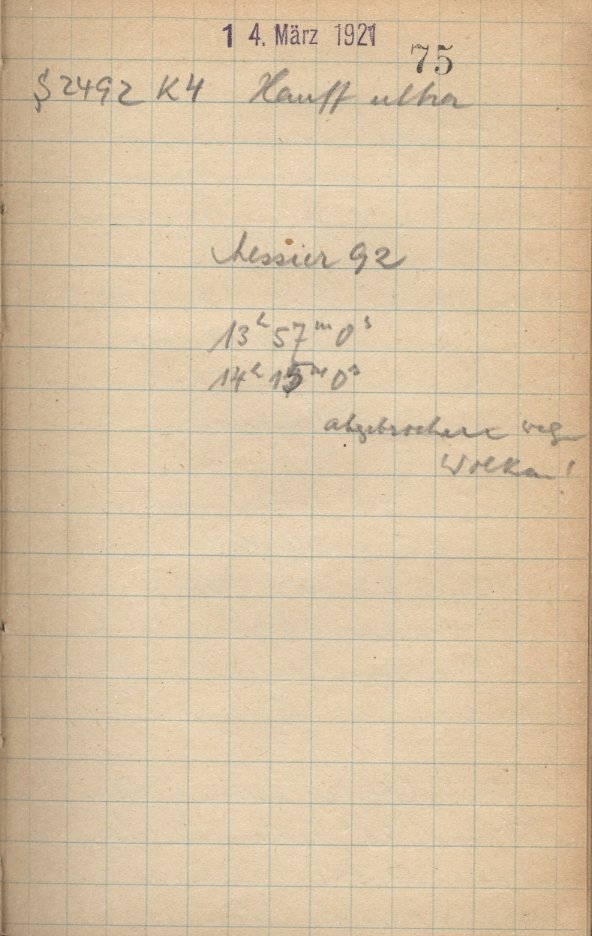 14. März 1921
75
S 2492 K4 Hauff ultra
Messier 92
13h 57m 0s
14h 15m 0s
abgebrochen weg
Wolken!